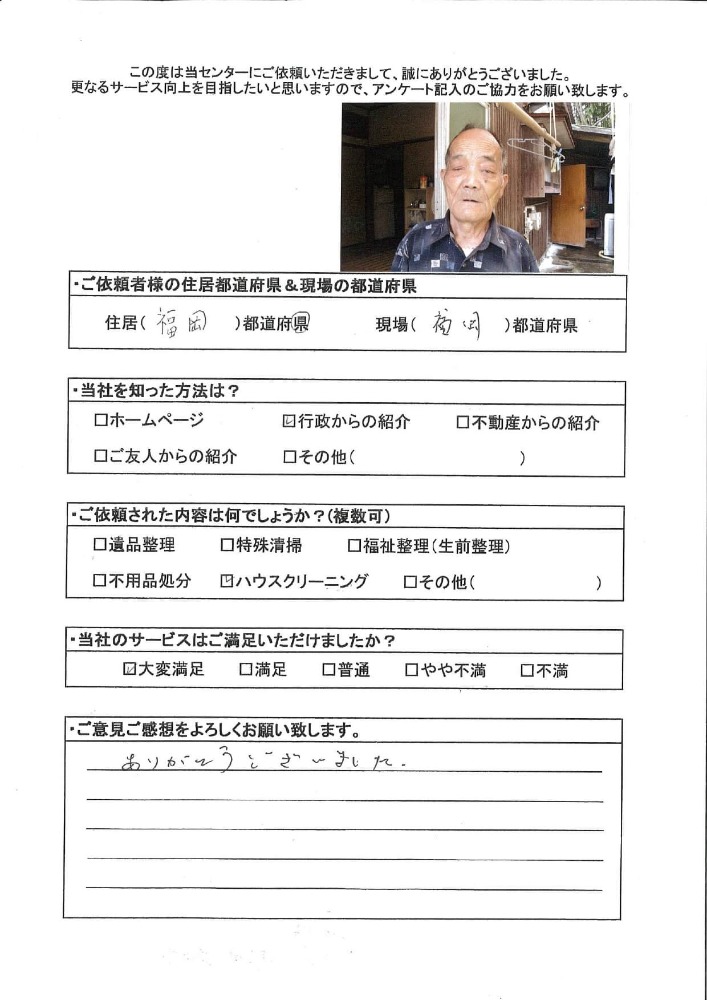 この度は当センターにご依頼いただきまして、誠にありがとうございました。
更なるサービス向上を目指したいと思いますので、アンケート記入のご協力をお願い致します。
・ご依頼者様の住居都道府県＆現場の都道府県
住居(福岡)都道府県 現場(福岡)都道府県
・当社を知った方法は？
□ホームページ ☑行政からの紹介 □不動産からの紹介
□ご友人からの紹介 □その他( )
・ご依頼された内容は何でしょうか？(複数可)
□遺品整理 □特殊清掃 □福祉整理(生前整理)
□不用品処分 ☑ハウスクリーニング □その他( )
・当社のサービスはご満足いただけましたか？
☑大変満足 □満足 □普通 □やや不満 □不満
・ご意見ご感想をよろしくお願い致します。
ありがとうございました.